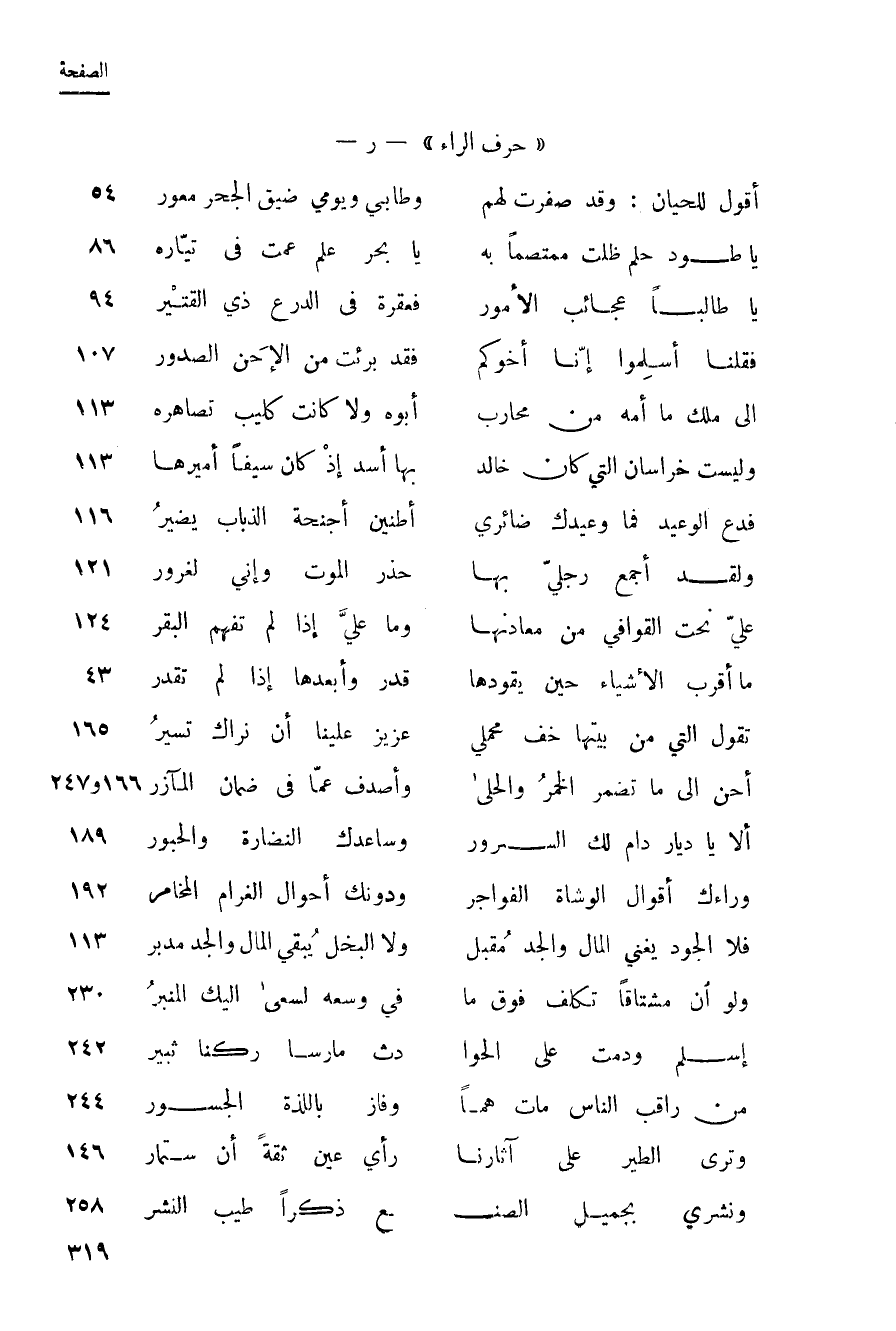 الصفحة
« حرف الراء » — ر —
أقول للحيان : وقد صفرت لهم وطابي ويومي ضيق الجحر معور ٥٤
يا طـــود حلم ظلت ممتصماً به يا بحر علم عمت فى تيّاره ٨٦
يا طالبـــاً عجائب الأمور فعقرة فى الدرع ذي القتْير ٩٤
فقلنـا أسلِموا إنّـا أخوكم فقد برئت من الإحَن الصدور ١٠٧
الى ملك ما أمه من محارب أبوه ولا كانت كليب تصاهره ١١٣
وليست خراسان التي كان خالد بها أسد إذْ كان سيفاً أميرهـا ١١٣
فدع الوعيد فما وعيدك ضائري أطنين أجنحة الذباب يضيرُ ١١٦
ولقـــد أجمع رجليّ بهـا حذر الموت وإني لغرور ١٢١
عليّ نحت القوافي من معادنهـا وما عليَّ إذا لم تفهم البقر ١٢٤
ما أقرب الأشياء حين يقودها قدر وأبعدها إذا لم تقدر ٤٣
تقول التي من بيتها خف محملي عزيز علينا أن نراك تسيرُ ١٦٥
أحن الى ما تضمر الخمرُ والحلىٰ وأصدف عمّا فى ضمان المآزر ١٦٦و٢٤٧
ألا يا ديار دام لك الســـرور وساعدك النضارة والحبور ١٨٩
وراءك أقوال الوشاة الفواجر ودونك أحوال الغرام المخامر ١٩٢
فلا الجود يغني المال والجد مُقبل ولا البخل يُبقي المال والجد مدبر ١١٣
ولو أن مشتاقاً تكلف فوق ما في وسعه لسعىٰ اليك المنبرُ ٢٣٠
إســـلم ودمت على الحوا دث مارسـا ركنا ثبير ٢٤٢
من راقب الناس مات همـاً وفاز باللذة الجســـور ٢٤٤
وترى الطير على آثارنـا رأي عين ثقةً أن ستمار ١٤٦
ونشري بجميـل الصنـــ ـع ذكراً طيب النشر ٢٥٨
٣١٩